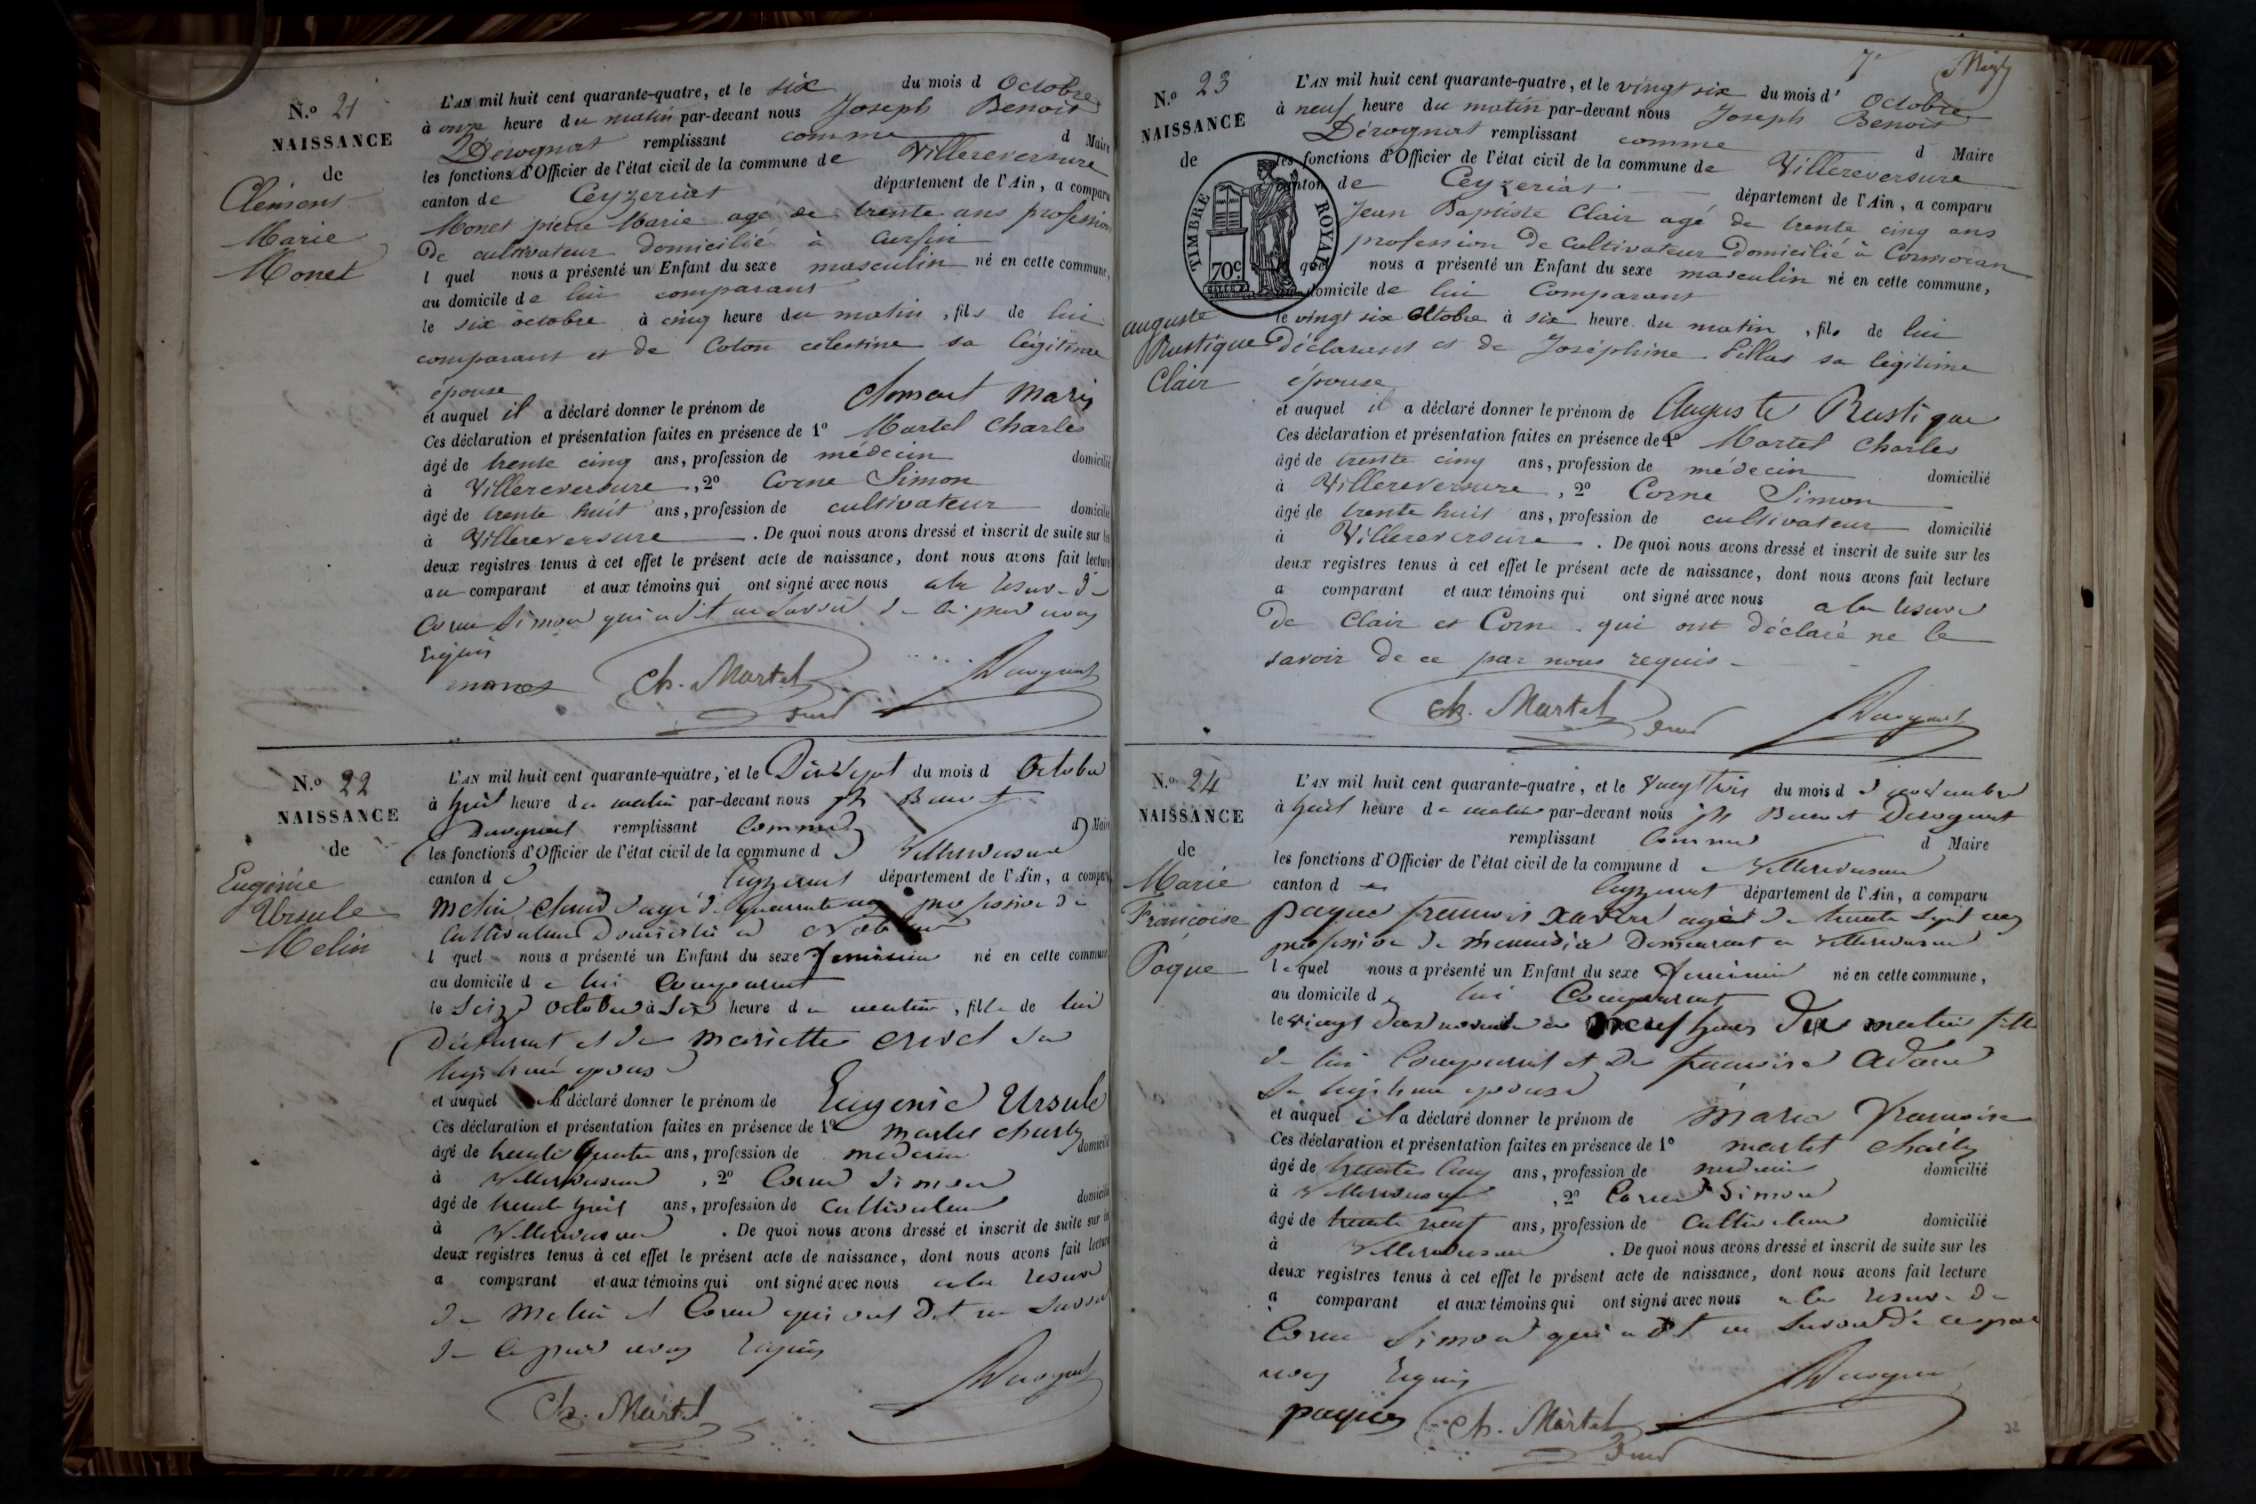 N.º 21
NAISSANCE
de
Clément
Marie
Monet
L'AN mil huit cent quarante-quatre, et le six du mois d Octobre
à onze heure du matin par-devant nous Joseph Benoit
Dérognat remplissant comme d Maire
les fonctions d'Officier de l'état civil de la commune de Villereversure
canton de Ceyzeriat département de l'Ain, a comparu
Monet pierre Marie agé de trente ans profession
De cultivateur domicilié à Cursin
l quel nous a présenté un Enfant du sexe masculin né en cette commune,
au domicile de lui comparant
le six octobre à cinq heure du matin, fils de lui
comparant et de Coton célestine sa légitime
épouse
et auquel il a déclaré donner le prénom de Clement Marie
Ces déclaration et présentation faites en présence de 1º Martel Charles
âgé de trente cinq ans, profession de médecin domicilié
à Villereversure, 2º Corne Simon
âgé de trente huit ans, profession de cultivateur domicilié
à Villereversure. De quoi nous avons dressé et inscrit de suite sur les
deux registres tenus à cet effet le présent acte de naissance, dont nous avons fait lecture
au comparant et aux témoins qui ont signé avec nous a la reserve de
Corne Simon qui a dit ne savoir de ce par nous
requis
monet Ch. Martel Dérognat
N.º 22
NAISSANCE
de
Eugénie
Ursule
Melin
L'AN mil huit cent quarante-quatre, et le Dix Sept du mois d Octobre
à huit heure du matin par-devant nous jh Benoit
Derognat remplissant Comme d Maire
les fonctions d'Officier de l'état civil de la commune de Villereversure
canton de Ceyzeriat département de l'Ain, a comparu
Melin Claude agé de quarante ans profession de
Cultivateur Domicilié a
l quel nous a présenté un Enfant du sexe feminin né en cette commune,
au domicile de lui Comparant
le Seize Octobre à Six heure du matin, fille de lui
Déclarant et de Mariette sa
legitime epouse
et auquel il a déclaré donner le prénom de Eugenie Ursule
Ces déclaration et présentation faites en présence de 1º Martel Charles
âgé de trente quatre ans, profession de medecin domicilié
à Villereversure, 2º Corne Simon
âgé de trente huit ans, profession de Cultivateur domicilié
à Villereversure. De quoi nous avons dressé et inscrit de suite sur les
deux registres tenus à cet effet le présent acte de naissance, dont nous avons fait lecture
a comparant et aux témoins qui ont signé avec nous a la reserve
de Melin et Corne qui ont Dit ne Savoir
de ce par nous requis
Ch. Martel Dérognat
7e
N.º 23
NAISSANCE
de
TIMBRE ROYAL
70c
auguste
Rustique
Clair
L'AN mil huit cent quarante-quatre, et le vingt six du mois d' Octobre
à neuf heure du matin par-devant nous Joseph Benoit
Dérognat remplissant comme d Maire
les fonctions d'Officier de l'état civil de la commune de Villereversure
canton de Ceyzeriat département de l'Ain, a comparu
Jean Baptiste Clair agé de trente cinq ans
profession De Cultivateur Domicilié à Cormoran
quel nous a présenté un Enfant du sexe masculin né en cette commune,
au domicile de lui Comparant
le vingt six Octobre à six heure du matin, fils de lui
Déclarant et de Joséphine Pillas sa légitime
épouse
et auquel il a déclaré donner le prénom de Auguste Rustique
Ces déclaration et présentation faites en présence de 1º Martel Charles
âgé de trente cinq ans, profession de médecin domicilié
à Villereversure, 2º Corne Simon
âgé de trente huit ans, profession de cultivateur domicilié
à Villereversure. De quoi nous avons dressé et inscrit de suite sur les
deux registres tenus à cet effet le présent acte de naissance, dont nous avons fait lecture
a comparant et aux témoins qui ont signé avec nous a la reserve
De Clair et Corne qui ont déclaré ne le
savoir De ce par nous requis
Ch. Martel Dérognat
N.º 24
NAISSANCE
de
Marie
Françoise
Paque
L'AN mil huit cent quarante-quatre, et le vingt trois du mois d novembre
à huit heure du matin par-devant nous jh Benoit Derognat
remplissant Comme d Maire
les fonctions d'Officier de l'état civil de la commune de Villereversure
canton de Ceyzeriat département de l'Ain, a comparu
paque francois xavier agé de trente sept ans
profession de menuisier Demeurant a Villereversure
lequel nous a présenté un Enfant du sexe feminin né en cette commune,
au domicile de lui Comparant
le vingt deux novembre a neuf heures Du matin fille
de lui Comparant et De francoise Adam
Sa legitime epouse
et auquel il a déclaré donner le prénom de Marie Francoise
Ces déclaration et présentation faites en présence de 1º Martel Charles
âgé de trente cinq ans, profession de medecin domicilié
à Villereversure, 2º Corne Simon
âgé de trente neuf ans, profession de Cultivateur domicilié
à Villereversure. De quoi nous avons dressé et inscrit de suite sur les
deux registres tenus à cet effet le présent acte de naissance, dont nous avons fait lecture
a comparant et aux témoins qui ont signé avec nous a la reserve de
Corne Simon qui a Dit ne Savoir de ce par
nous requis
paque Ch. Martel Dérognat